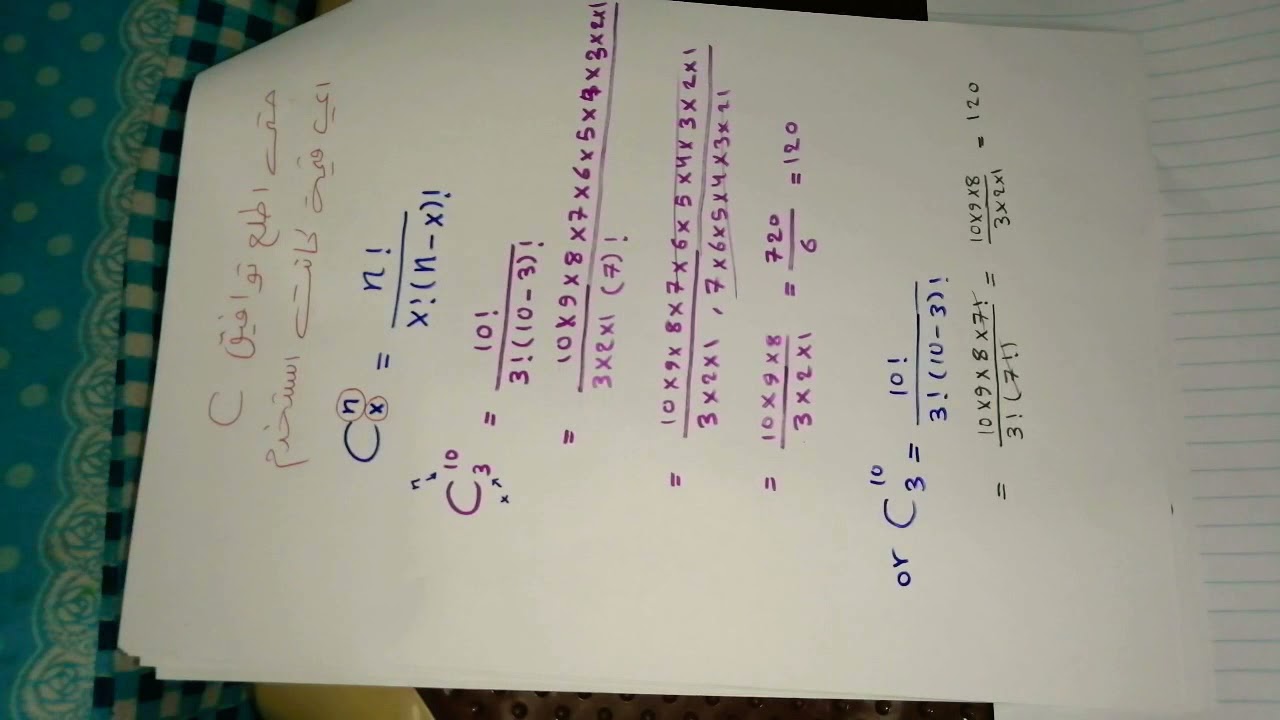 متى اطلع توافيق C
اي قيمة كانت استخدم
C n x = n! / x!(n-x)!
n
C 10 3 = 10! / 3!(10-3)!
x
= 10×9×8×7×6×5×4×3×2×1 / 3×2×1 (7)!
= 10×9×8×7×6×5×4×3×2×1 / 3×2×1 , 7×6×5×4×3×21
= 10×9×8 / 3×2×1 = 720 / 6 = 120
or C 10 3 = 10! / 3!(10-3)!
= 10×9×8×7! / 3!(7!) = 10×9×8 / 3×2×1 = 120